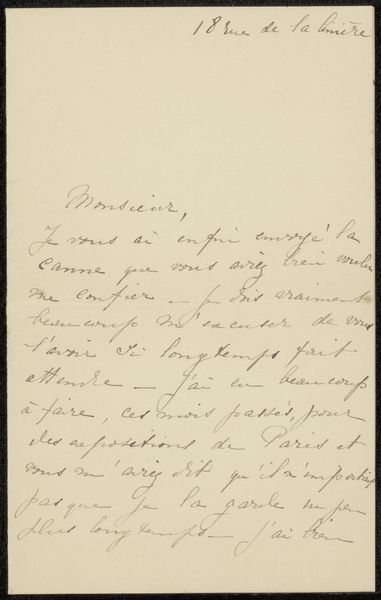 18 rue de la linière
Monsieur,
Je vous ai enfin envoyé la
canne que vous aviez bien voulu
me confier — je dois vraiment
beaucoup m'excuser de vous
l'avoir si longtemps fait
attendre — j'ai eu beaucoup
à faire, ces mois passés, pour
des expositions de Paris et
vous m'aviez dit qu'il n'importait
pas que je la garde un peu
plus longtemps — j'ai bien